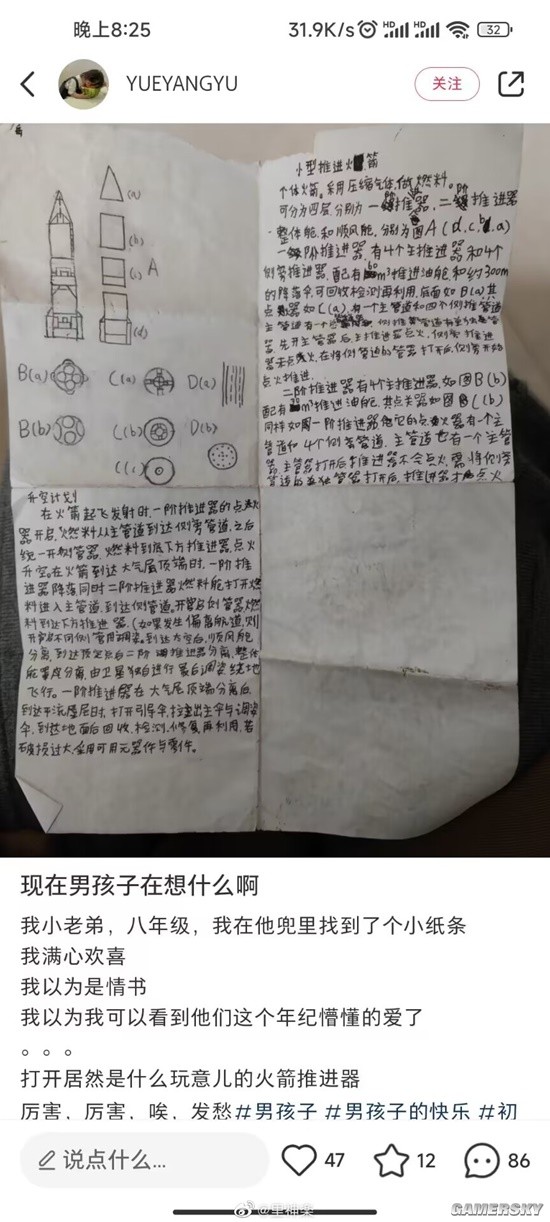 晚上8:25
31.9K/s
HD
HD
32
YUEYANGYU
关注
(a)
(b)
(c) A
(d)
B(a)
C(a)
D(a)
B(b)
C(b)
D(b)
C(c)
升空计划
在火箭起飞发射时,一阶推进器的点火
器开启,燃料从主管道到达侧旁管道,之后
统一开侧管器,燃料到底下方推进器,点火
升空。在火箭到达大气层顶端时,一阶推
进器降落同时二阶推进器燃料舱打开燃
料进入主管道,到达侧管道。开启侧管器燃
料到达下方推进器。(如果发生偏离航道,则
开启不同侧管用调姿。到达太空后,顺风舱
分离,到达预定点后二阶推进器分离,整体
舱分离,由卫星独自进行最后调姿绕地
飞行。一阶推进器在大气层顶端分离后
到达平流层时,打开引导伞,拉出主伞与调姿
伞,到达地面后回收,检测,修复再利用,若
破损过大,采用可用元器件与零件。
小型推进火箭
个体火箭。采用压缩气体做燃料。
可分为四层,分别为一阶推进器,二阶推进器
整体舱,和顺风舱,分别为图A(d,c,b,a)
一阶推进器,有4个主推进器和4个
侧旁推进器,配有60m³推进油舱和约300m
的降落伞,可回收检测再利用,底面如B(a)其
点火器如C(a),有一个主管道和四个侧推管道
主管道有一个
器,先开主管器后,主推进器点火,侧旁推进
器未点火,在将侧管道的管器打开后,侧旁开始
点火推进。
二阶推进器有4个主推进器,如图B(b)
配有m³推进油舱,其点火器如图C(b)
同样如同一阶推进器他的点火器有一个主
管道和4个侧旁管道,主管道也有一个主管
器,主管器打开后,推进器不会点火,需将侧旁
管道的单独管器打开后,推进器才点火
现在男孩子在想什么啊
我小老弟,八年级,我在他兜里找到了个小纸条
我满心欢喜
我以为是情书
我以为我可以看到他们这个年纪懵懂的爱了
。。。
打开居然是什么玩意儿的火箭推进器
厉害,厉害,唉,发愁#男孩子 #男孩子的快乐 #初
说点什么...
47
12
86
GAMERSKY